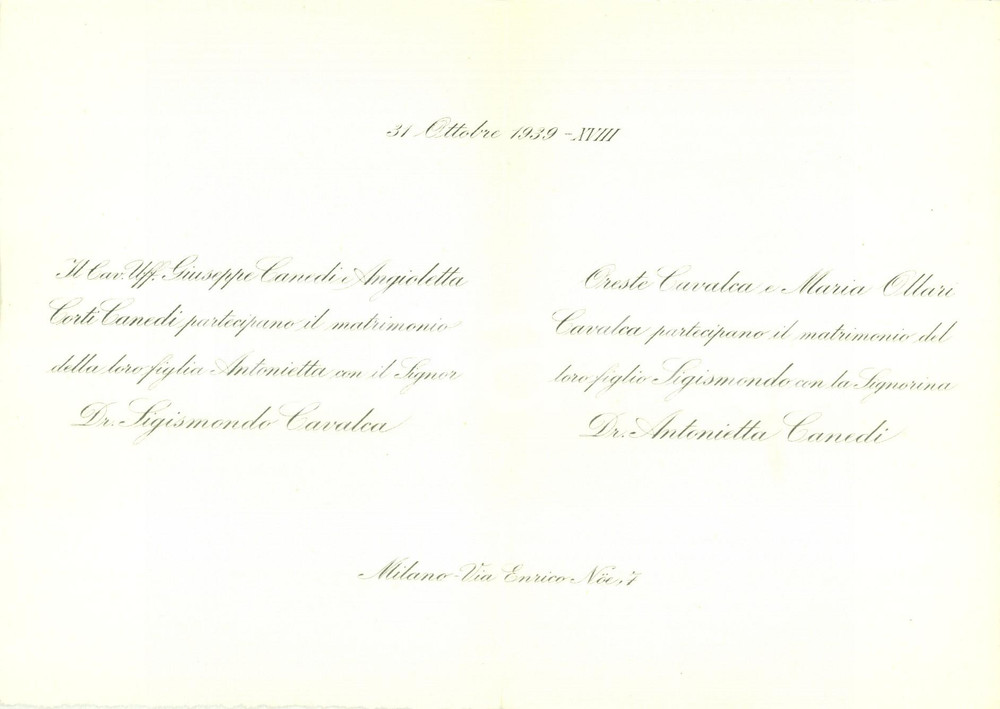 31 Ottobre 1939-XVIII
Il Cav. Uff. Giuseppe Canedi e Angioletta
Corti Canedi partecipano il matrimonio
della loro figlia Antonietta con il Signor
Dr. Sigismondo Cavalca
Oreste Cavalca e Maria Ollari
Cavalca partecipano il matrimonio del
loro figlio Sigismondo con la Signorina
Dr. Antonietta Canedi
Milano - Via Enrico Nöe, 7